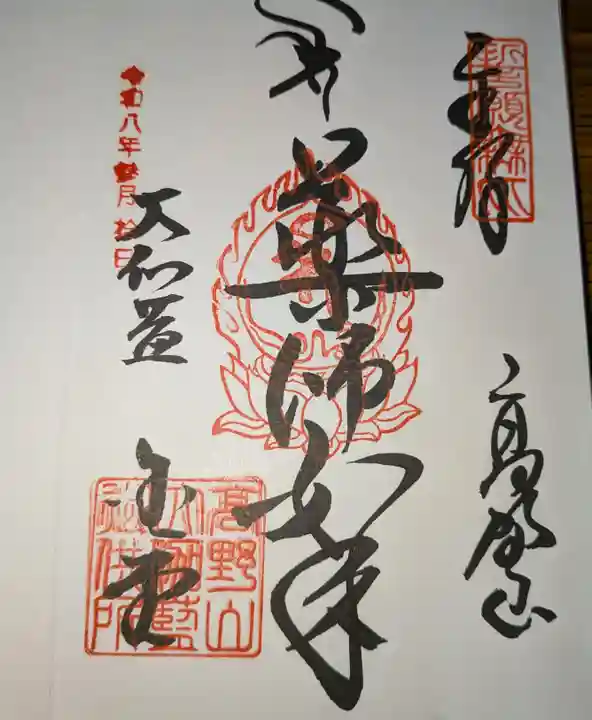 奉拝
高野山
薬師如来
大伽藍
金堂
令和八年
月拾日
高野山
大伽藍
供所